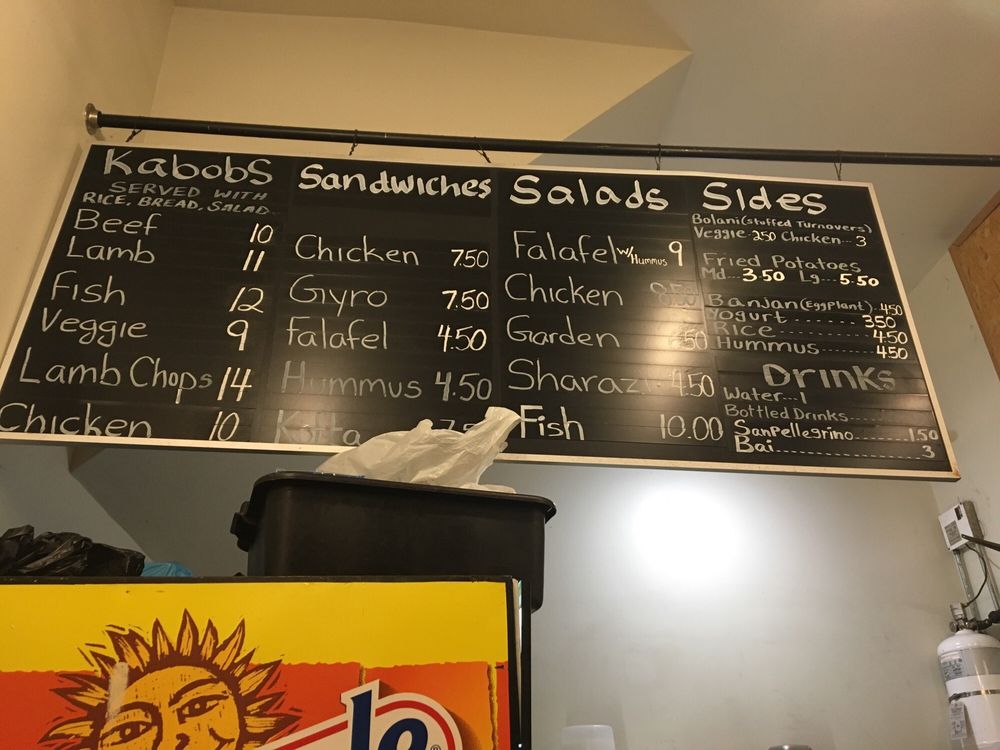 Kabobs
SERVED WITH
RICE, BREAD, SALAD
Beef 10
Lamb 11
Fish 12
Veggie 9
Lamb Chops 14
Chicken 10
Sandwiches
Chicken 7.50
Gyro 7.50
Falafel 4.50
Hummus 4.50
Salads
Falafel w/Hummus 9
Chicken
Garden
Sharazi 4.50
Fish 10.00
Sides
Bolani (stuffed Turnovers)
Veggie. 250 Chicken... 3
Fried Potatoes
Md... 3.50 Lg.. 5.50
Banjan (Eggplant). 450
Yogurt ........ 350
Rice ........... 4.50
Hummus ........ 450
Drinks
Water...1
Bottled Drinks.....
SanPellegrino........ 1.50
Bai ............... 3
le®